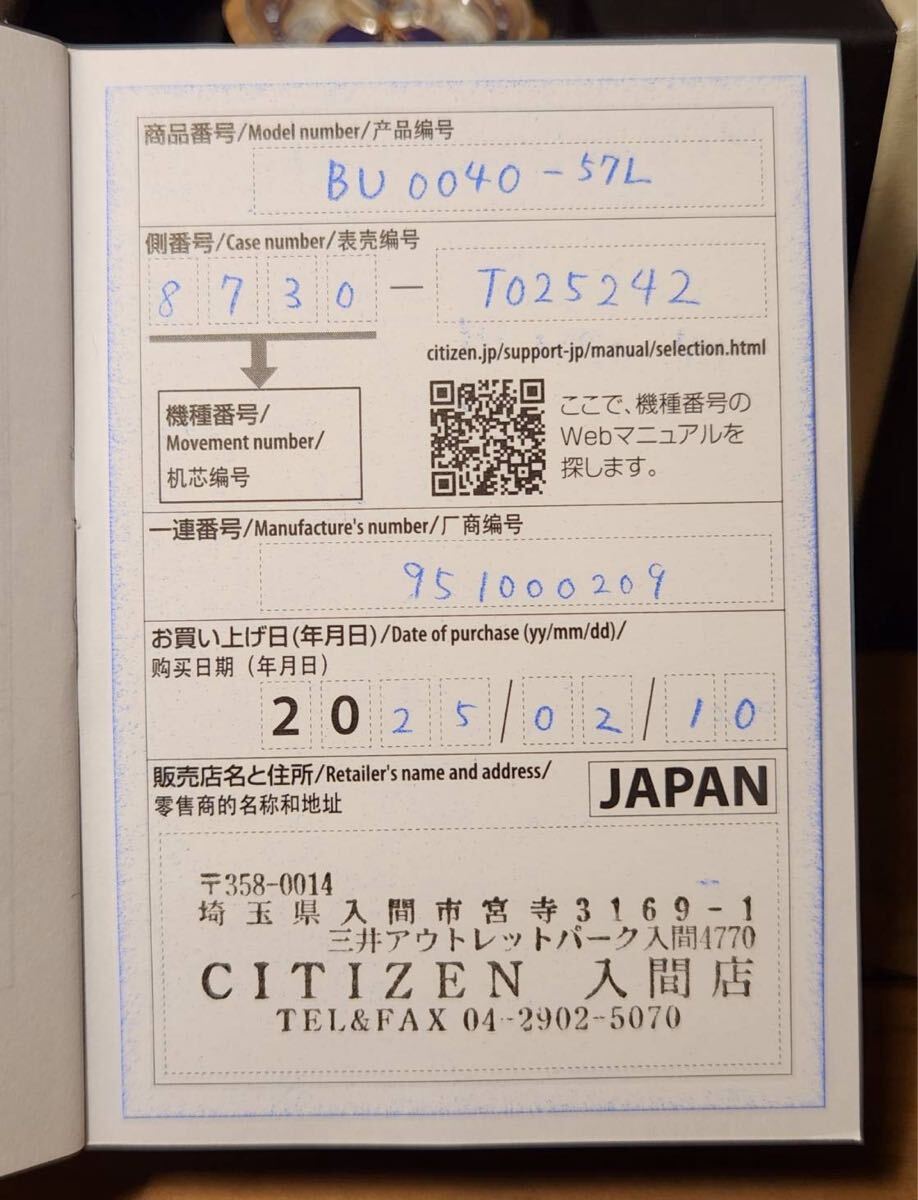 商品番号/Model number/产品编号
BU0040-57L
側番号/Case number/表壳编号
8730-T025242
citizen.jp/support-jp/manual/selection.html
機種番号/
Movement number/
机芯编号
ここで、機種番号の
Webマニュアルを
探します。
一連番号/Manufacture's number/厂商编号
951000209
お買い上げ日(年月日)/Date of purchase (yy/mm/dd)/
购买日期（年月日）
2025/02/10
販売店名と住所/Retailer's name and address/
零售商的名称和地址
JAPAN
〒358-0014
埼玉県入間市宮寺3169-1
三井アウトレットパーク入間4770
CITIZEN 入間店
TEL&FAX 04-2902-5070